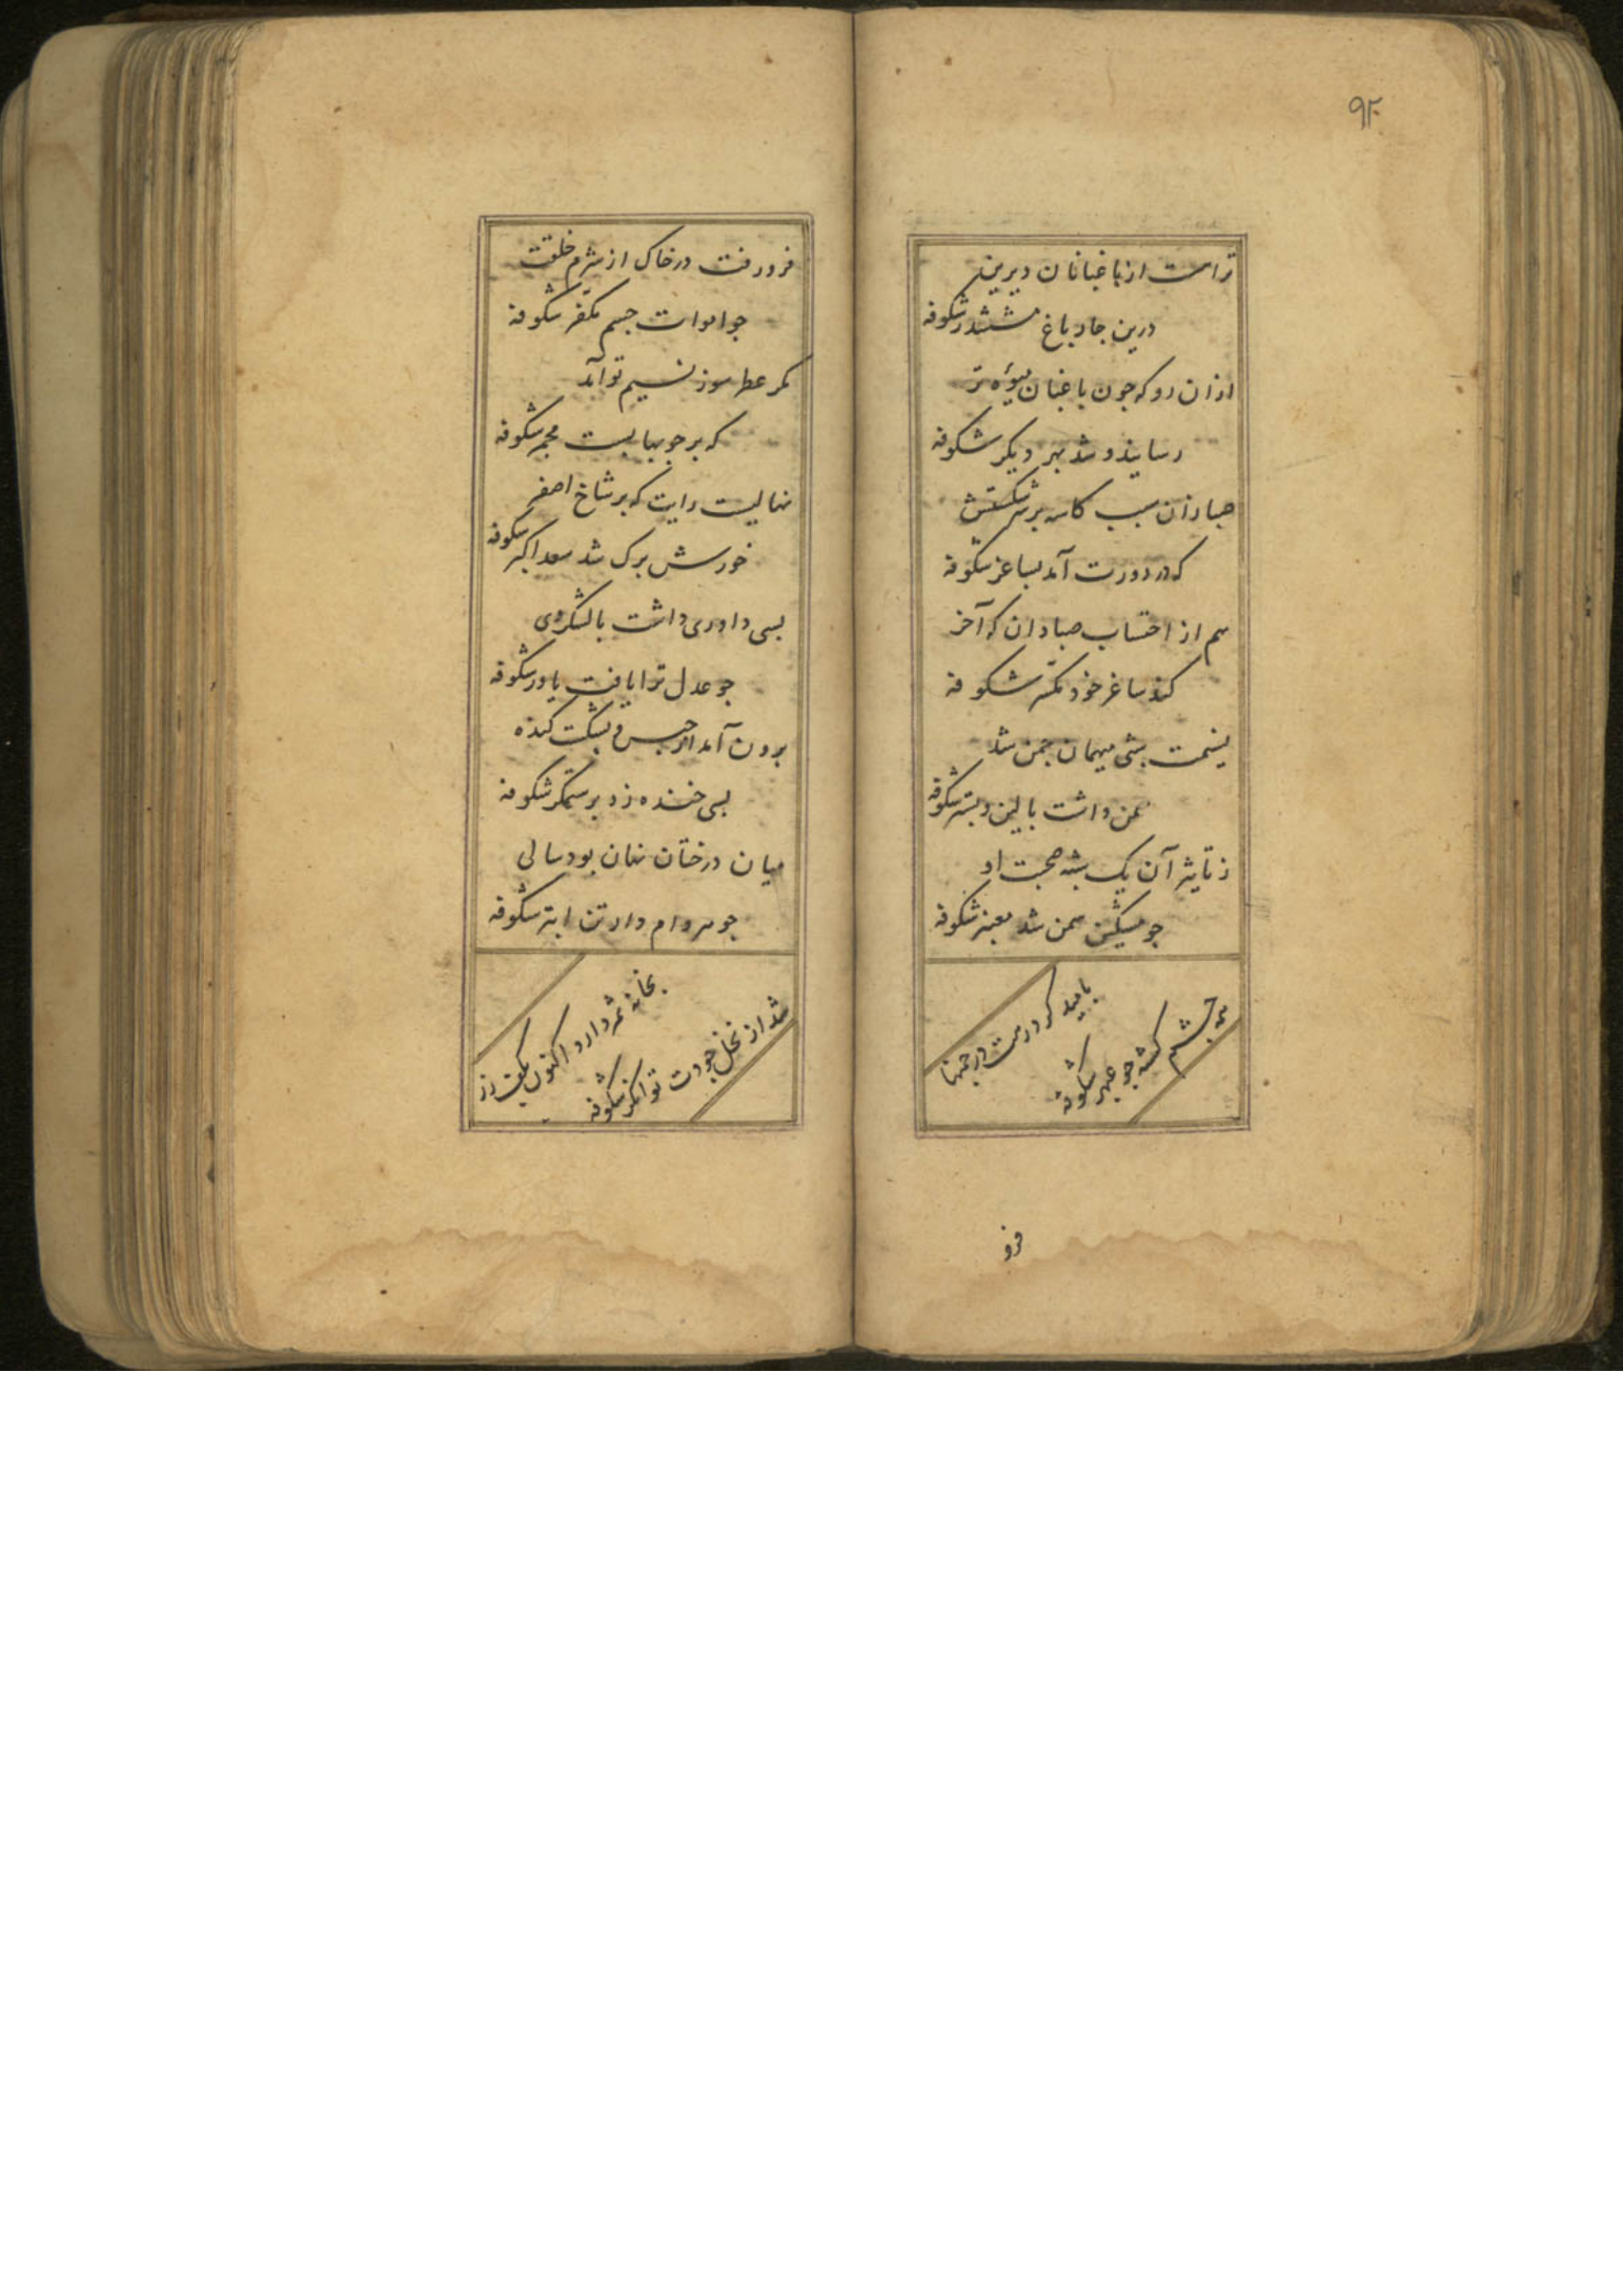 ۹۲
تراست از باغبانان دیرین
درین چار باغ مششدر شکوفه
ازان رو که جون باغبان میوهٔ تر
رسانید و شد بهر دیکر شکوفه
صبا زان سبب کاسه بر سر شکستش
که در دورت آمد بساغر شکوفه
هم از احتساب صبا دان که آخر
کند ساغر خود مکسر شکوفه
نسیمت شبی میهمان جمن شد
سمن داشت بالین و بستر شکوفه
ز تاثیر آن یک شبه صحبت او
جو مشکین سمن شد معنبر شکوفه
بامید کرد رهت در جمنها
همه جشم کشته جو عبهر شکوفه
فرو
فرو رفت در خاک از شرم خلقت
جو اموات جسم مکفر شکوفه
مکر عطرسوز نسیم تو آمد
که بر جوبها بست مجمر شکوفه
نهالیست رایت که بر شاخ اصفر
خورش برک شد سعد اکبر شکوفه
بسی داوری داشت با لشکر دی
جو عدل ترا یافت یاور شکوفه
برون آمد از حبس و بشکست کنده
بسی خنده زد بر ستمکر شکوفه
میان درختان نهان بود سالی
جو مردام دار تن ابتر شکوفه
بخانه ثمر دارد اکنون بکف زر
شد از نخل جودت توانکر شکوفه